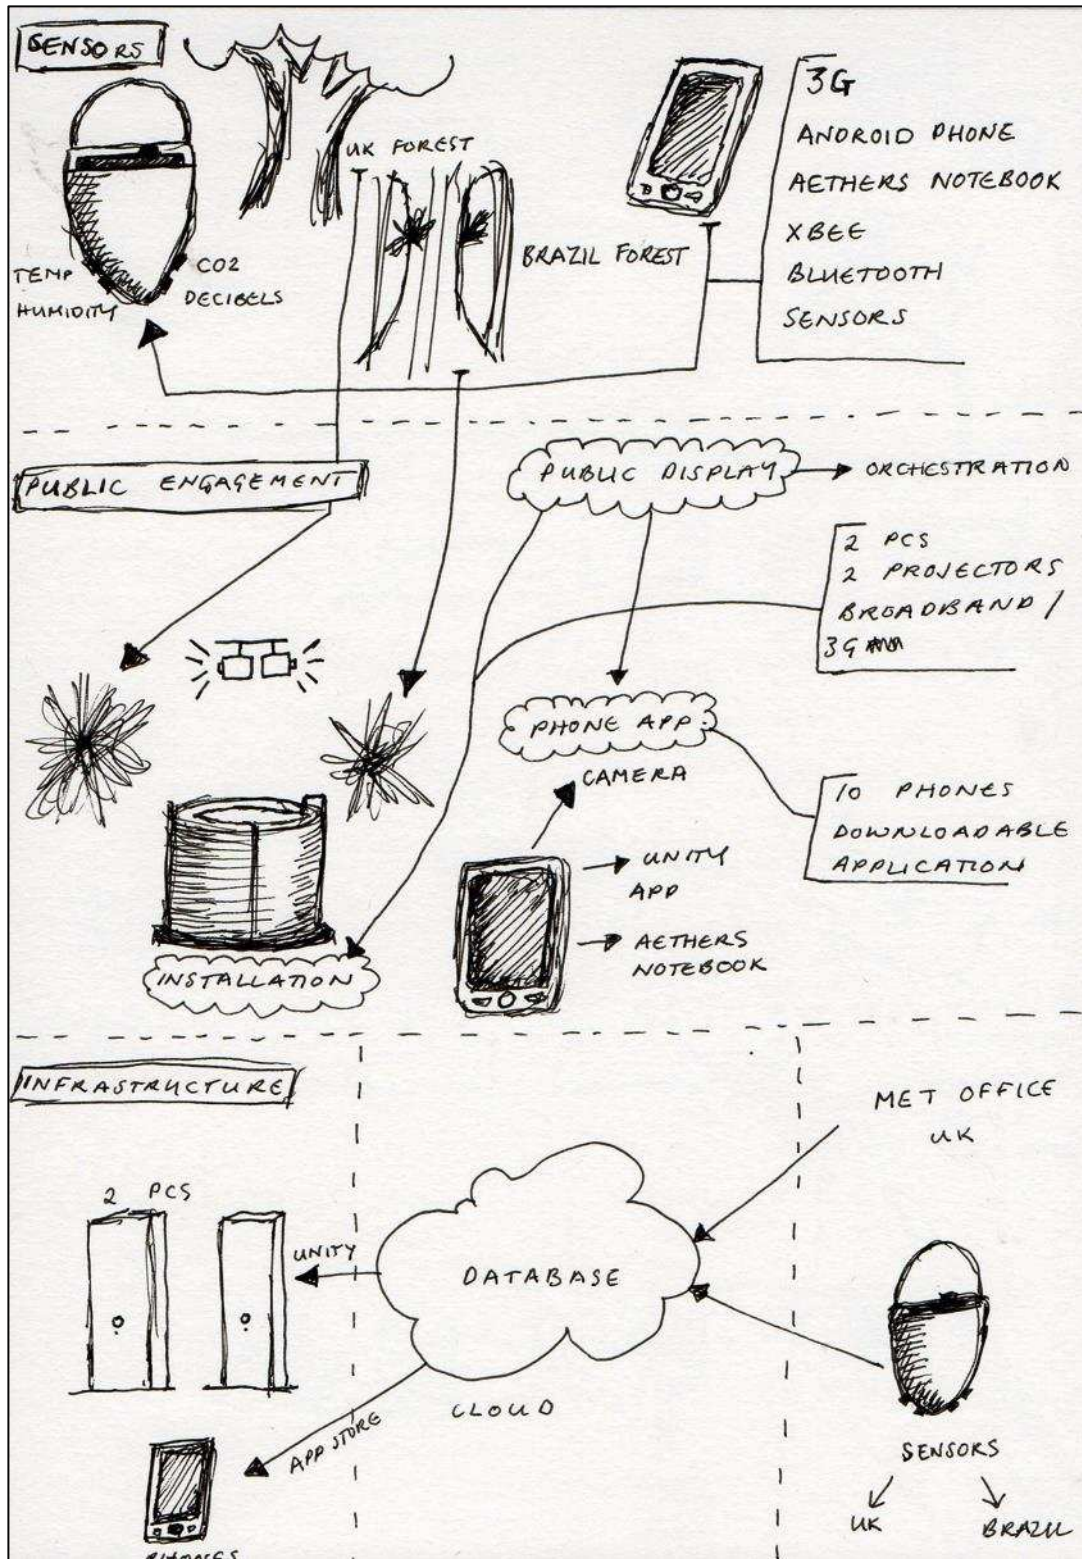 SENSORS
UK FOREST
BRAZIL FOREST
TEMP
HUMIDITY
CO2
DECIBELS
3G
ANDROID PHONE
AETHERS NOTEBOOK
XBEE
BLUETOOTH
SENSORS
PUBLIC ENGAGEMENT
PUBLIC DISPLAY
ORCHESTRATION
2 PCS
2 PROJECTORS
BROADBAND /
3G
PHONE APP
CAMERA
UNITY
APP
AETHERS
NOTEBOOK
10 PHONES
DOWNLOADABLE
APPLICATION
INSTALLATION
INFRASTRUCTURE
2 PCS
UNITY
DATABASE
CLOUD
APP STORE
PHONES
MET OFFICE
UK
SENSORS
UK
BRAZIL